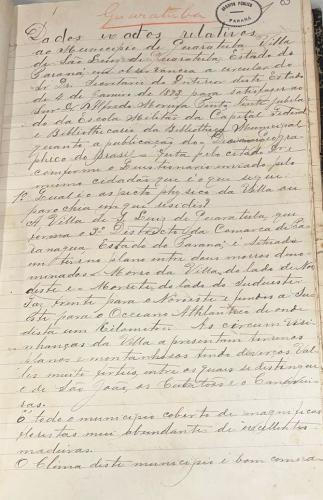 Guaratuba
ARCHIVO PUBLICO
PARANÁ
8
Dados exatos relativos
ao Municipio de Guaratuba Villa
de São Luiz de Guaratuba Estado do
Paraná, em observancia a circular do
Dr. Secretario do Interior deste Estado
de 8 de Janeiro de 1893, para satisfazer ao
Snr. D. Alfredo Moreira Pinto, Lente jubila
do da Escola Militar da Capital Federal
e Bibliothecario da Bibliotheca Municipal
quanto a publicação do
phico do Brasil feita pelo citado Dr.
comforme o
mesmo cidadão que é o que segue
1º Qual é o aspecto physico da Villa ou
parochia em que reside?
A Villa de S. Luiz de Guaratuba, que
forma o 3º Districto da Comarca de Pa
ranaguá Estado do Paraná, é situada
em terreno plano entre dous morros deno
minados Morro da Villa, do lado de Nor
deste e Morrete do lado do Sudueste
Faz frente para o Noroeste e fundos a Su
leste para o Occeano Athlantico de onde
dista um Kilometro. As circumvisi
nhanças da Villa apresentam terrenos
planos e montanhosos tendo diversos val
les muito ferteis, entre os quaes se distingue
o de São João, os Cubatões e o Canavi
eiras.
É todo o municipio coberto de magnificas
florestas mui abundante de excellentes
madeiras.
O Clima deste municipio é bom como a